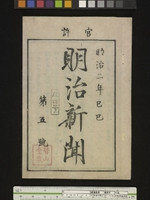 官許
明治二年己巳
明治新聞
第五號